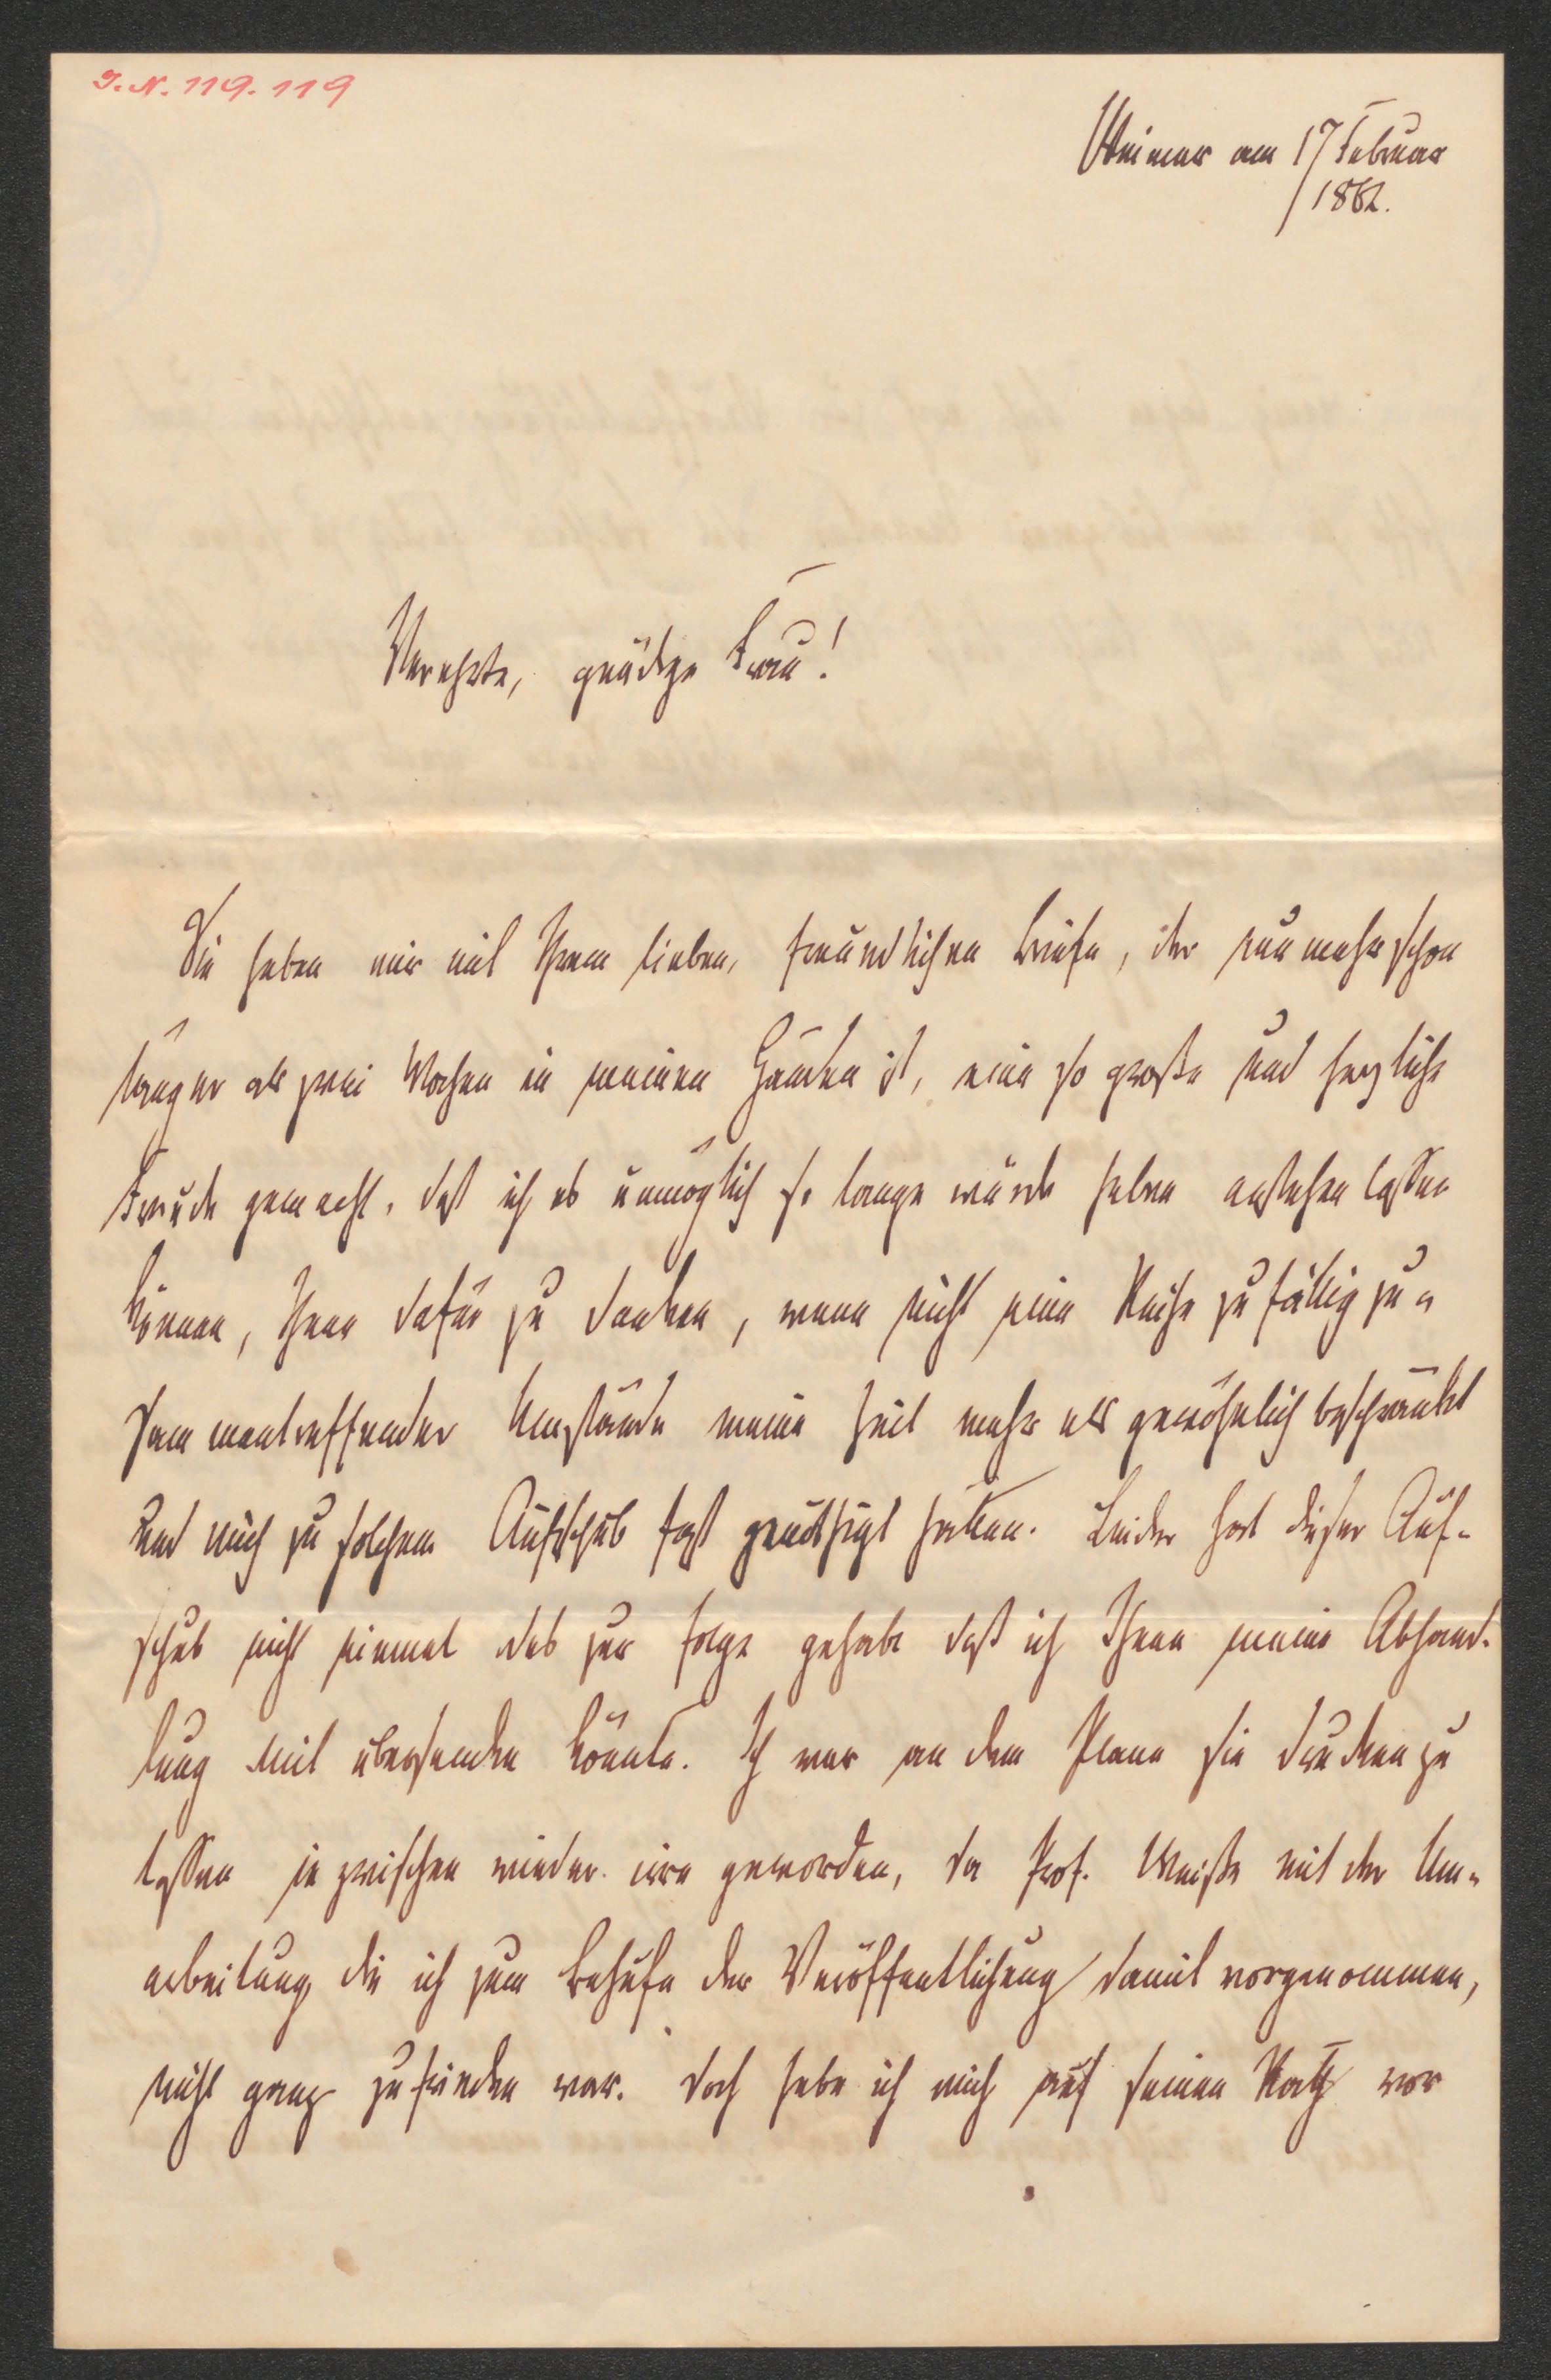 I. N. 119. 119
Weimar am 17 Februar
1862.
Verehrte, gnädge Frau!
Sie haben mir mit Ihrem lieben, freundlichen Briefe, der nun mehr schon
länger als zwei Wochen in meinen Händen ist, eine so große und herzliche
Freude gemacht, daß ich es unmöglich so lange würde haben anstehen lassen
können, Ihnen dafür zu danken, wenn nicht eine Reihe zufällig zu-
sammentreffender Umstände meine Zeit mehr als gewöhnlich beschränkt
und mich zu solchem Aufschub fast genöthigt hätten. Leider hat dieser Auf-
schub nicht einmal das zur Folge gehabt daß ich Ihnen meine Abhand-
lung mit übersenden könnte. Ich war an dem Plane sie drucken zu
lassen inzwischen wieder irre geworden, da Prof. Weiße mit der Um-
arbeitung, die ich zum Behufe der Veröffentlichung damit vorgenommen,
nicht ganz zufrieden war. Doch habe ich mich auf seinen Rath vor